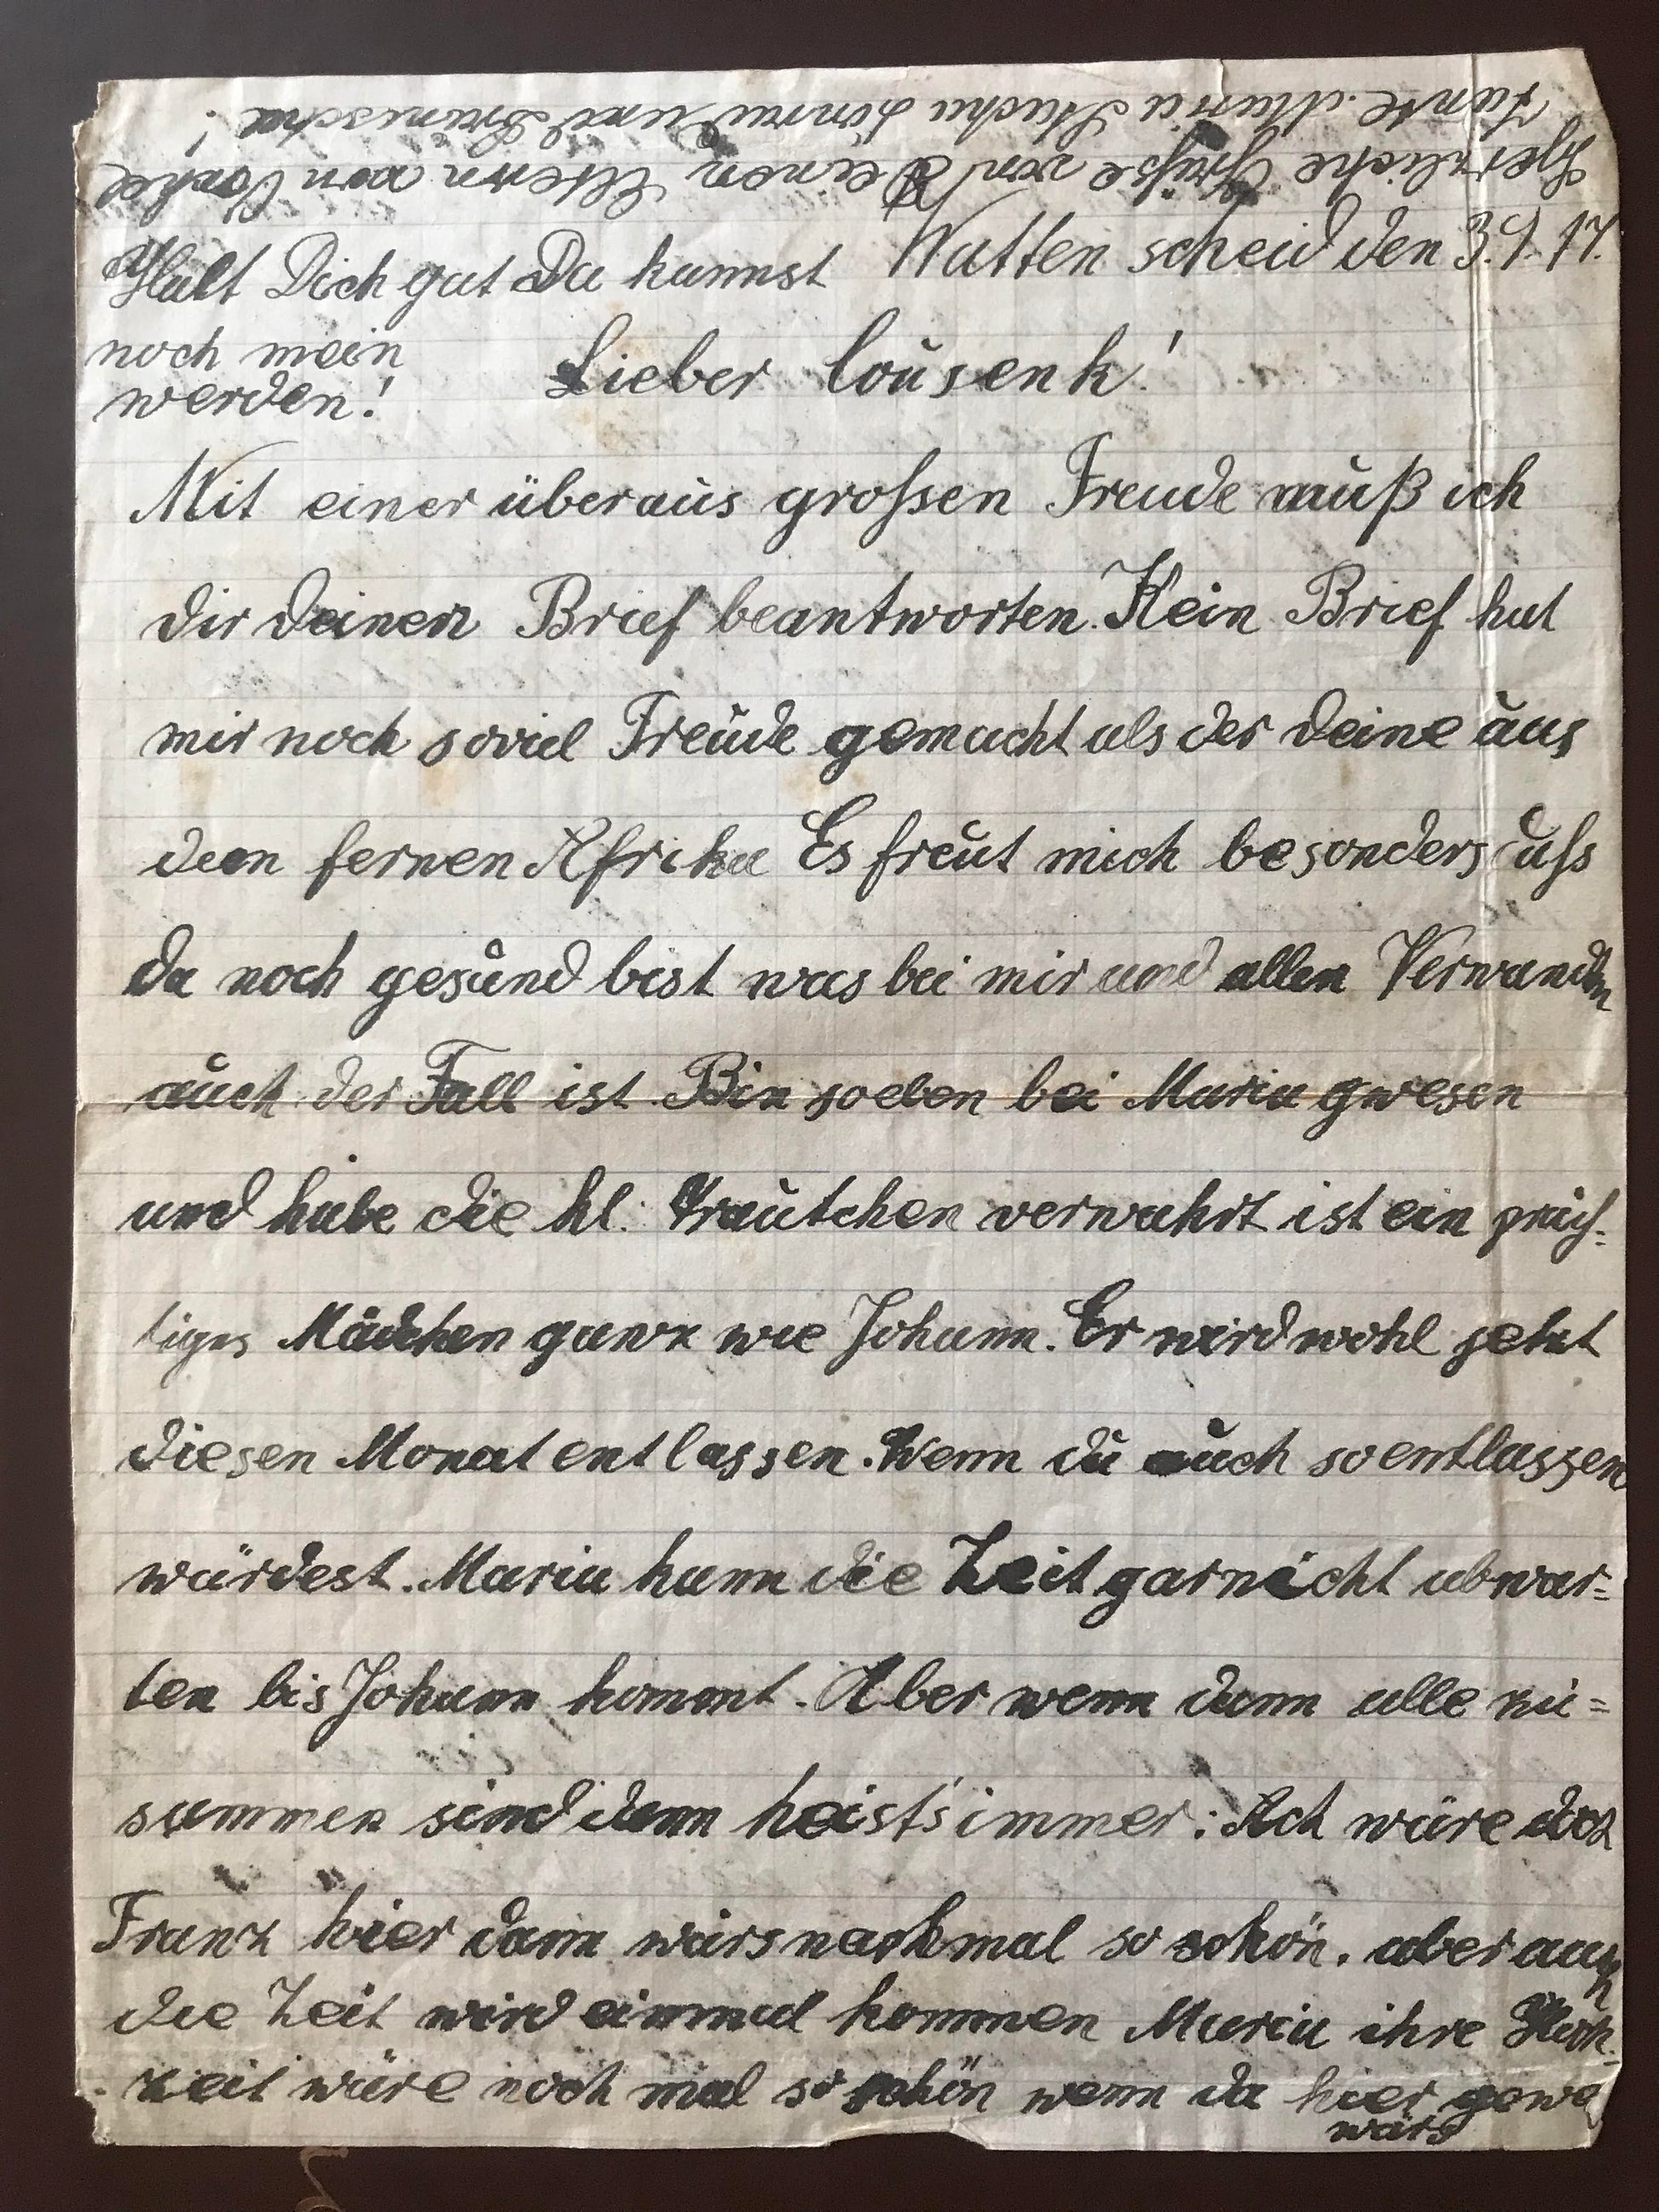 Herzliche Grüße von Deinen Eltern von Onkel
Tante Maria Stucha Hinrich und Fränzscha!
Wattenscheid den 3.9.17.
Halt Dich gut Du kannst
noch mein
werden!
Lieber Cousenk!
Mit einer überaus großen Freude muß ich
dir deinen Brief beantworten. Kein Brief hat
mir noch soviel Freude gemacht als der deine aus
dem fernen Afrika Es freut mich besonders daß
du noch gesund bist was bei mir und allen Verwandten
auch der Fall ist. Bin soeben bei Maria gwesen
und habe die kl. Trautchen verwahrt ist ein präch-
tiges Mädchen ganz wie Johann. Er wird wohl jetzt
diesen Monat entlassen. Wenn du auch so entlassen
würdest. Maria kann die Zeit garnicht abwar-
ten bis Johann kommt. Aber wenn dann alle zu-
sammen sind dann heists immer: Ach wäre doch
Franz hier dann wärs nochmal so schön. aber auch
die Zeit wird einmal kommen Maria ihre Hoch-
zeit wäre noch mal so schön wenn du hier gewe
wärs